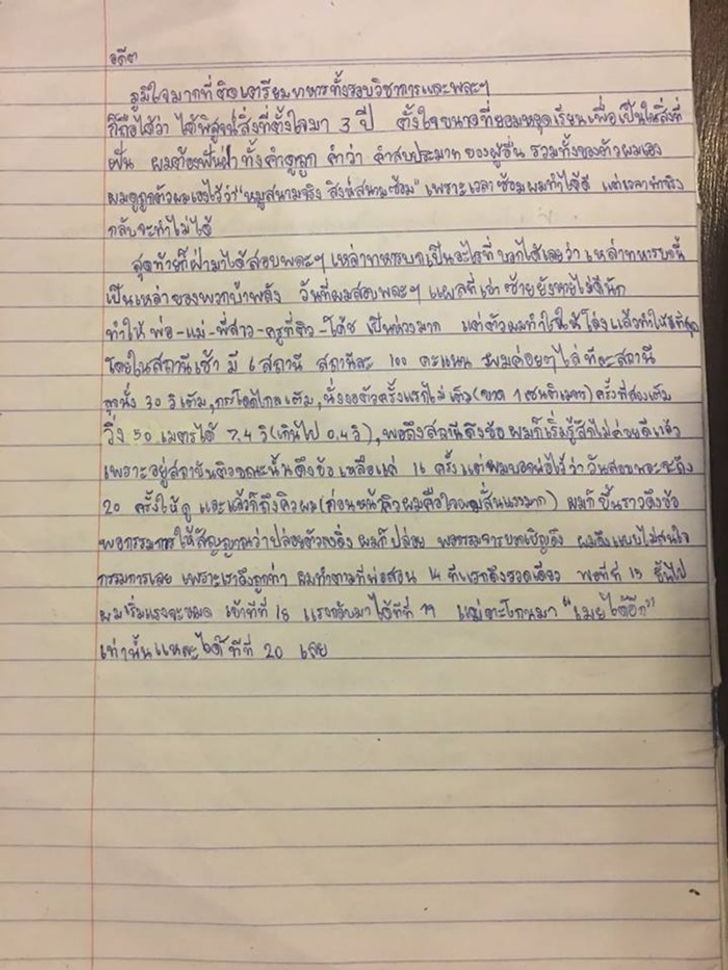 อดีต
ภูมิใจมากที่ติดเตรียมทหารทั้งรอบวิชาการและพละฯ
ก็ถือได้ว่า ได้พิสูจน์สิ่งที่ตั้งใจมา 3 ปี ตั้งใจขนาดที่ยอมหยุดเรียนเพื่อเป็นในสิ่งที่
ฝัน ผมต้องฟันฝ่าทั้งคำดูถูก คำว่า คำสบประมาท ของผู้อื่น รวมทั้งของตัวผมเอง
ผมดูถูกตัวผมเองไว้ว่า "หมูสนามจริง สิงห์สนามซ้อม" เพราะเวลาซ้อมผมทำได้ดี แต่เวลาทำจริง
กลับจะทำไม่ได้
สุดท้ายก็ฝ่ามาได้สอบพละฯ เหล่าทหารบกเป็นอะไรที่บอกได้เลยว่า เหล่าทหารบกนี้
เป็นเหล่าของพวกบ้าพลัง วันที่ผมสอบพละฯ แผลที่เข่าซ้ายยังหายไม่ดีนัก
ทำให้พ่อ-แม่-พี่สาว-ครูที่ติว-โค้ช เป็นห่วงมาก แต่ตัวผมทำใจให้โล่งแล้วทำให้ดีที่สุด
โดยในสถานีเช้า มี 6 สถานี สถานีละ 100 คะแนน ผมค่อยๆไล่ทีละสถานี
ลุกนั่ง 30 วิเต็ม, กระโดดไกลเต็ม, นั่งงอตัวครั้งแรกไม่เต็ม(ขาด 1 เซนติเมตร) ครั้งที่สองเต็ม
วิ่ง 50 เมตรได้ 7.4 วิ(เกินไป 0.4 วิ), พอถึงสถานีดึงข้อ ผมก็เริ่มรู้สึกไม่ค่อยดีแล้ว
เพราะอยู่สถาบันติวขณะนั้นดึงข้อ เหลือแค่ 16 ครั้ง แต่ผมบอกพ่อไว้ว่าวันสอบพละจะดึง
20 ครั้งให้ดู และแล้วก็ถึงคิวผม(ก่อนหน้าคิวผมคือใจผมสั่นแรงมาก) ผมก็ขึ้นราวดึงข้อ
พอกรรมการให้สัญญาณว่าปล่อยตัวลงดิ่ง ผมก็ปล่อย พอกรรมการบอกเชิญดึง ผมดึงแบบไม่สนใจ
กรรมการเลย เพราะเราดึงถูกท่า ผมทำตามที่พ่อสอน 14 ทีแรกดึงรวดเดียว พอทีที่ 15 ขึ้นไป
ผมเริ่มแรงจะหมด เข้าทีที่ 18 แรงกลับมาได้ทีที่ 19 แม่ตะโกนมา "เมย์ได้อีก"
เท่านั้นแหละได้ทีที่ 20 เลย